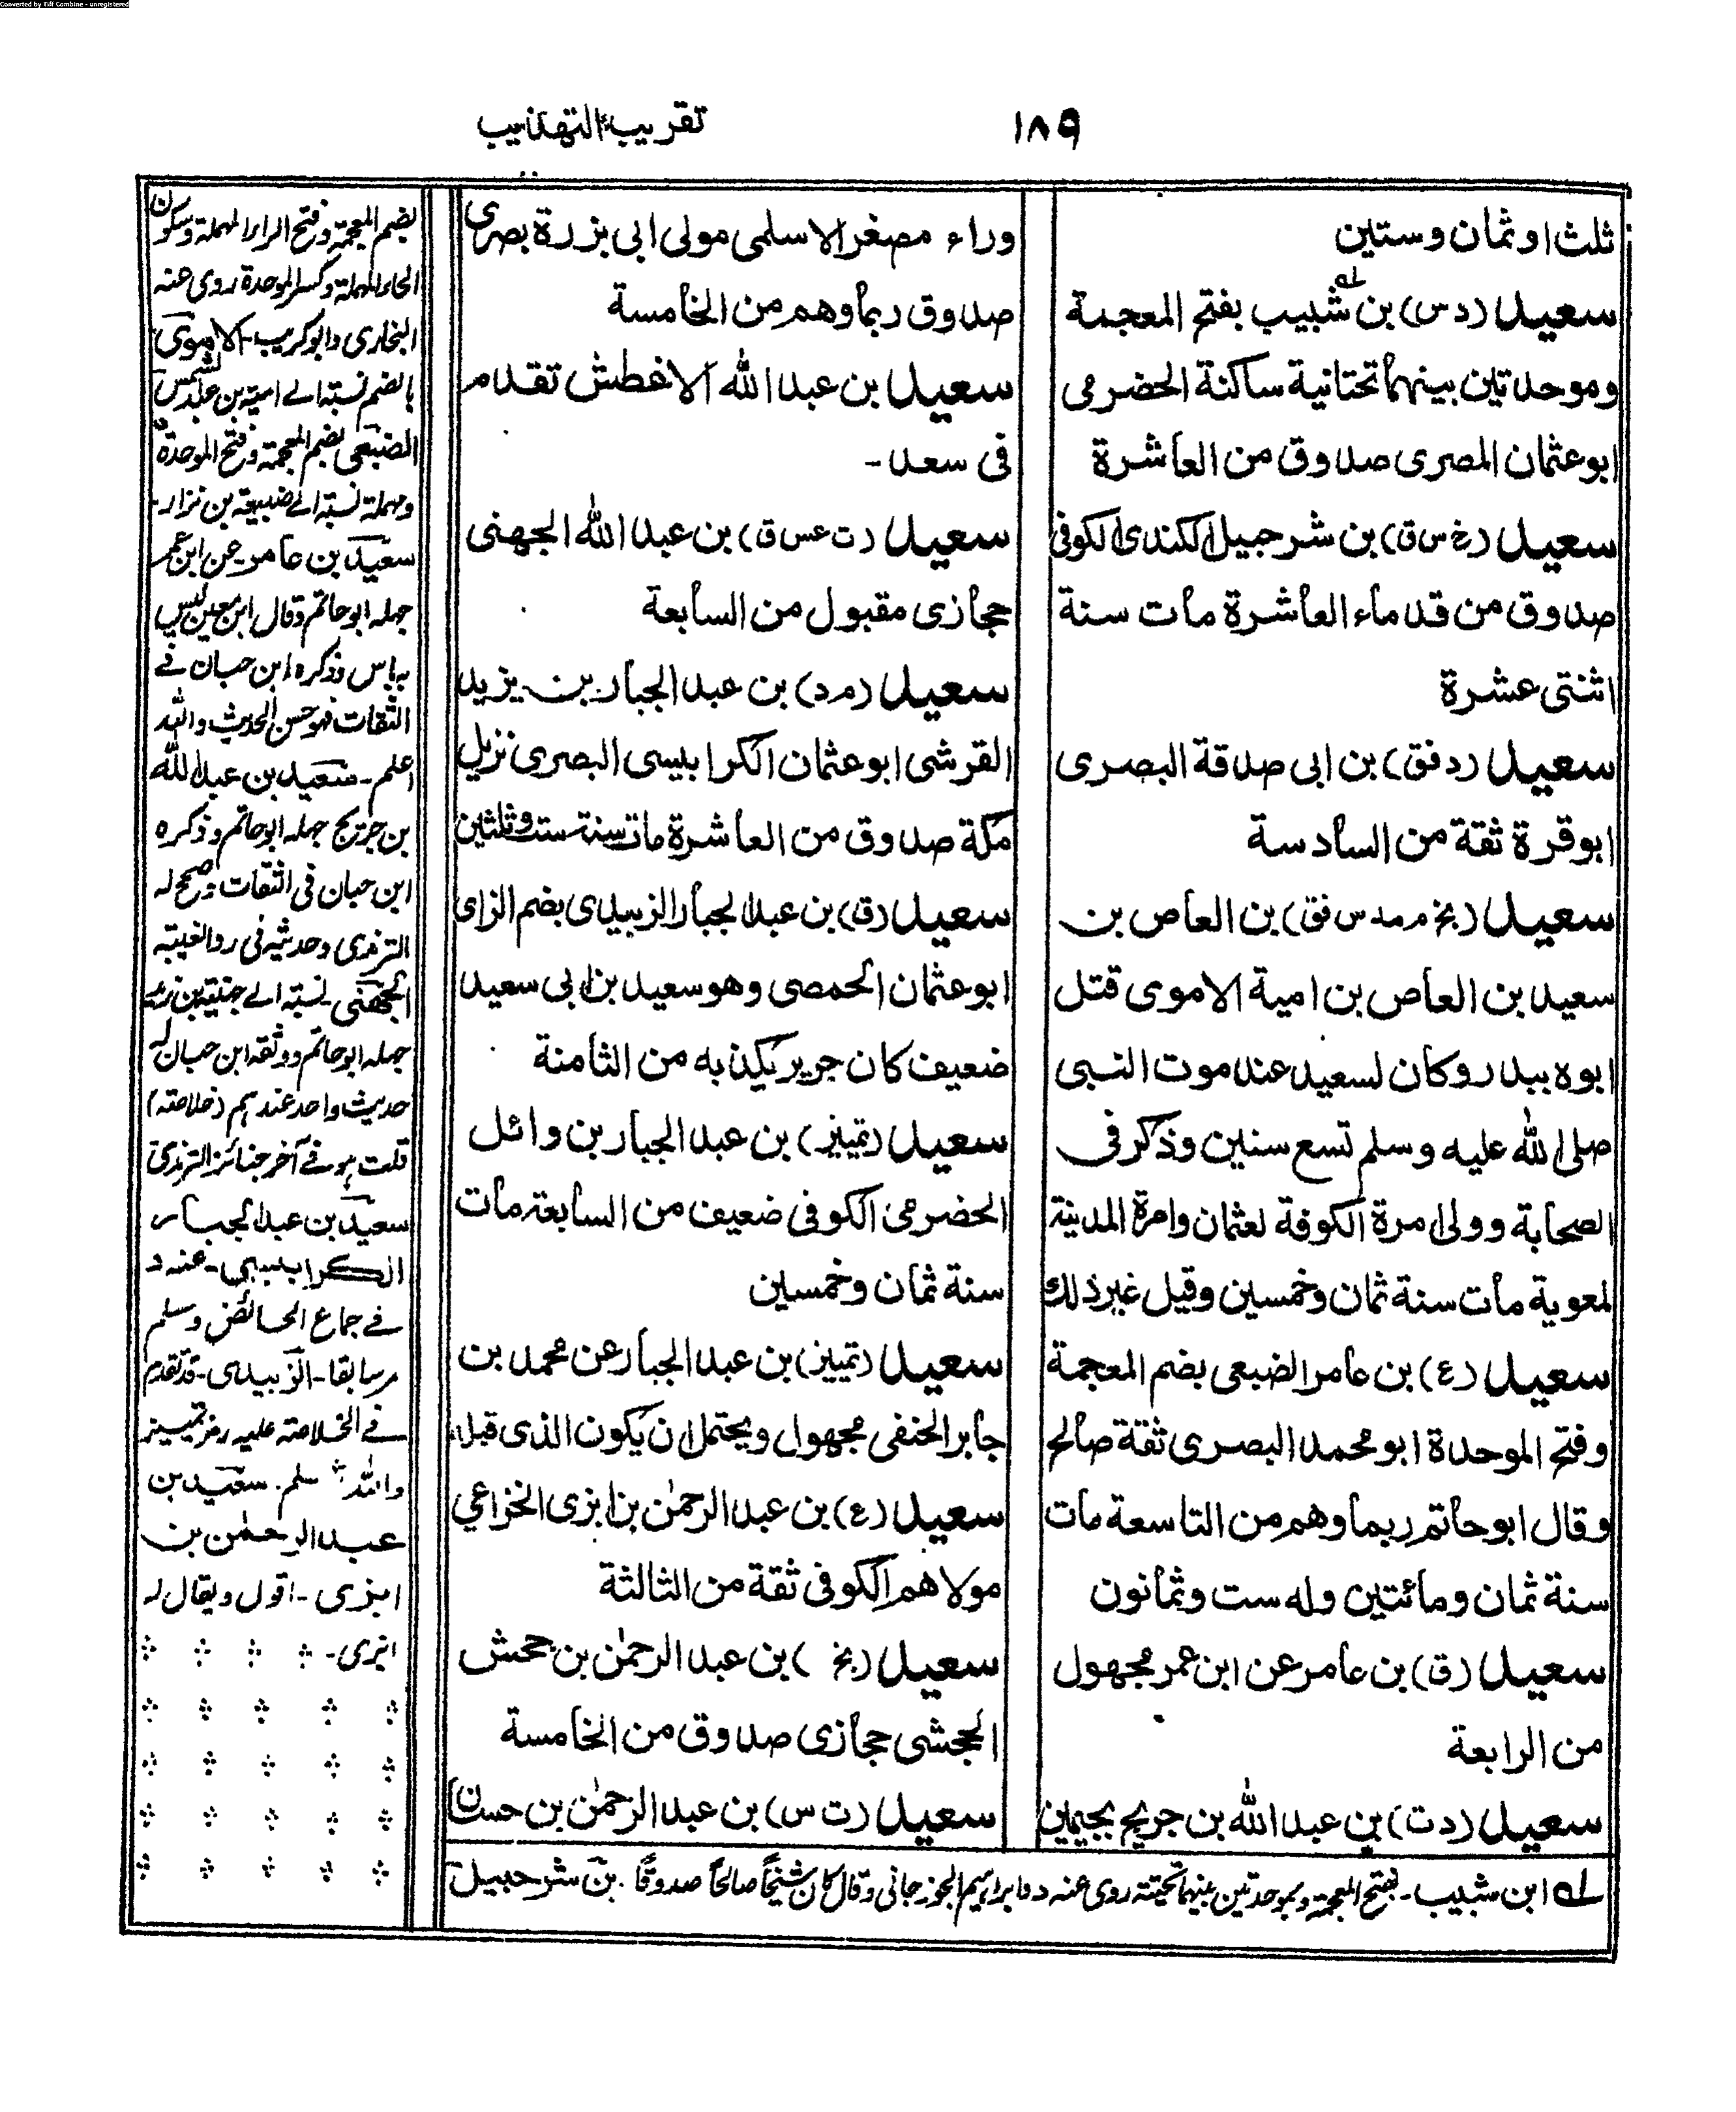 Converted by Tiff Combine - unregistered
١٨٩
تقريب التهذيب
ثلث او ثمان وستين
سعيد (د س) بن شبيب بفتح المعجمة
وموحدتين بينهما تحتانية ساكنة الحضرمى
ابو عثمان المصرى صدوق من العاشرة
سعيد (خ س ق) بن شرحبيل الكندى الكوفى
صدوق من قدماء العاشرة مات سنة
اثنتى عشرة
سعيد (د فق) بن ابى صدقة البصرى
ابو قرة ثقة من السادسة
سعيد (بخ م مد س فق) بن العاص بن
سعيد بن العاص بن امية الاموى قتل
ابوه ببدر وكان لسعيد عند موت النبى
صلى الله عليه وسلم تسع سنين وذكر فى
الصحابة وولى امرة الكوفة لعثمان وامرة المدينة
لمعوية مات سنة ثمان وخمسين وقيل غير ذلك
سعيد (ع) بن عامر الضبعى بضم المعجمة
وفتح الموحدة ابو محمد البصرى ثقة صالح
وقال ابو حاتم ربما وهم من التاسعة مات
سنة ثمان ومائتين وله ست وثمانون
سعيد (ق) بن عامر عن ابن عمر مجهول
من الرابعة
سعيد (د ت) بن عبد الله بن جريج بجيمين
وراء مصغر الاسلمى مولى ابى بزرة بصرى
صدوق ربما وهم من الخامسة
سعيد بن عبد الله الاغطش تقدم
فى سعد -
سعيد (ت عس ق) بن عبد الله الجهنى
حجازى مقبول من السابعة
سعيد (م د) بن عبد الجبار بن يزيد
القرشى ابو عثمان الكرابيسى البصرى نزيل
مكة صدوق من العاشرة مات سنة ست وثلثين
سعيد (ق) بن عبد الجبار الزبيدى بضم الزاى
ابو عثمان الحمصى وهو سعيد بن ابى سعيد
ضعيف كان جرير يكذبه من الثامنة
سعيد (تمييز) بن عبد الجبار بن وائل
الحضرمى الكوفى ضعيف من السابعة مات
سنة ثمان وخمسين
سعيد (تمييز) بن عبد الجبار عن محمد بن
جابر الحنفى مجهول ويحتمل ان يكون الذى قبله
سعيد (ع) بن عبد الرحمٰن بن ابزى الخزاعي
مولاهم الكوفى ثقة من الثالثة
سعيد (بخ ) بن عبد الرحمٰن بن جحش
الجحشى حجازى صدوق من الخامسة
سعيد (ت س) بن عبد الرحمٰن بن حسان
له ابن شبيب - بفتح المعجمة وبموحدتين بينهما تحتية روى عنه د وابراهيم الجوزجانى وقال كان شيخًا صالحًا صدوقًا . بن شرحبيل
بضم المعجمة وفتح الراء المهملة وسكون
الحاء المهملة وكسر الموحدة روى عنه
البخارى وابو كريب - الاموى
بالضم نسبة الے امية بن عبد شمس
الضبعى بضم المعجمة وفتح الموحدة
ومهملة نسبة الے ضبيعة بن نزار -
سعيد بن عامر عن ابن عمر
جهله ابو حاتم وقال ابن معين ليس
به باس وذكره ابن حبان فے
الثقات فهو حسن الحديث والله
اعلم - سعيد بن عبد الله
بن جريج جهله ابو حاتم وذكره
ابن حبان فى الثقات وصحح له
الترمذى وحديثه فى رد الغيبة
الجهنى - نسبة الے جهينة بن زيد
جهله ابو حاتم ووثقه ابن حبان له
حديث واحد عندهم (خلاصة)
قلت هو فے آخر جنائز الترمذى
سعيد بن عبد الجبار
الكرابيسي - عنه د
فے جماع الحائض ومسلم
مر سابقا - الزبيدى - قد تقدم
فے الخلاصة عليه رمز تمييز
والله سلم . سعيد بن
عبد الرحمٰن بن
ابزى - اقول ويقال له
ابزى -